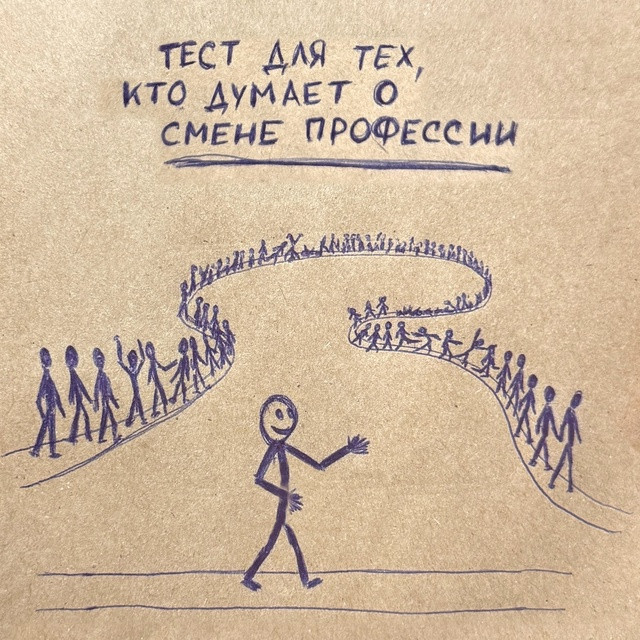 ТЕСТ ДЛЯ ТЕХ,
КТО ДУМАЕТ О
СМЕНЕ ПРОФЕССИИ